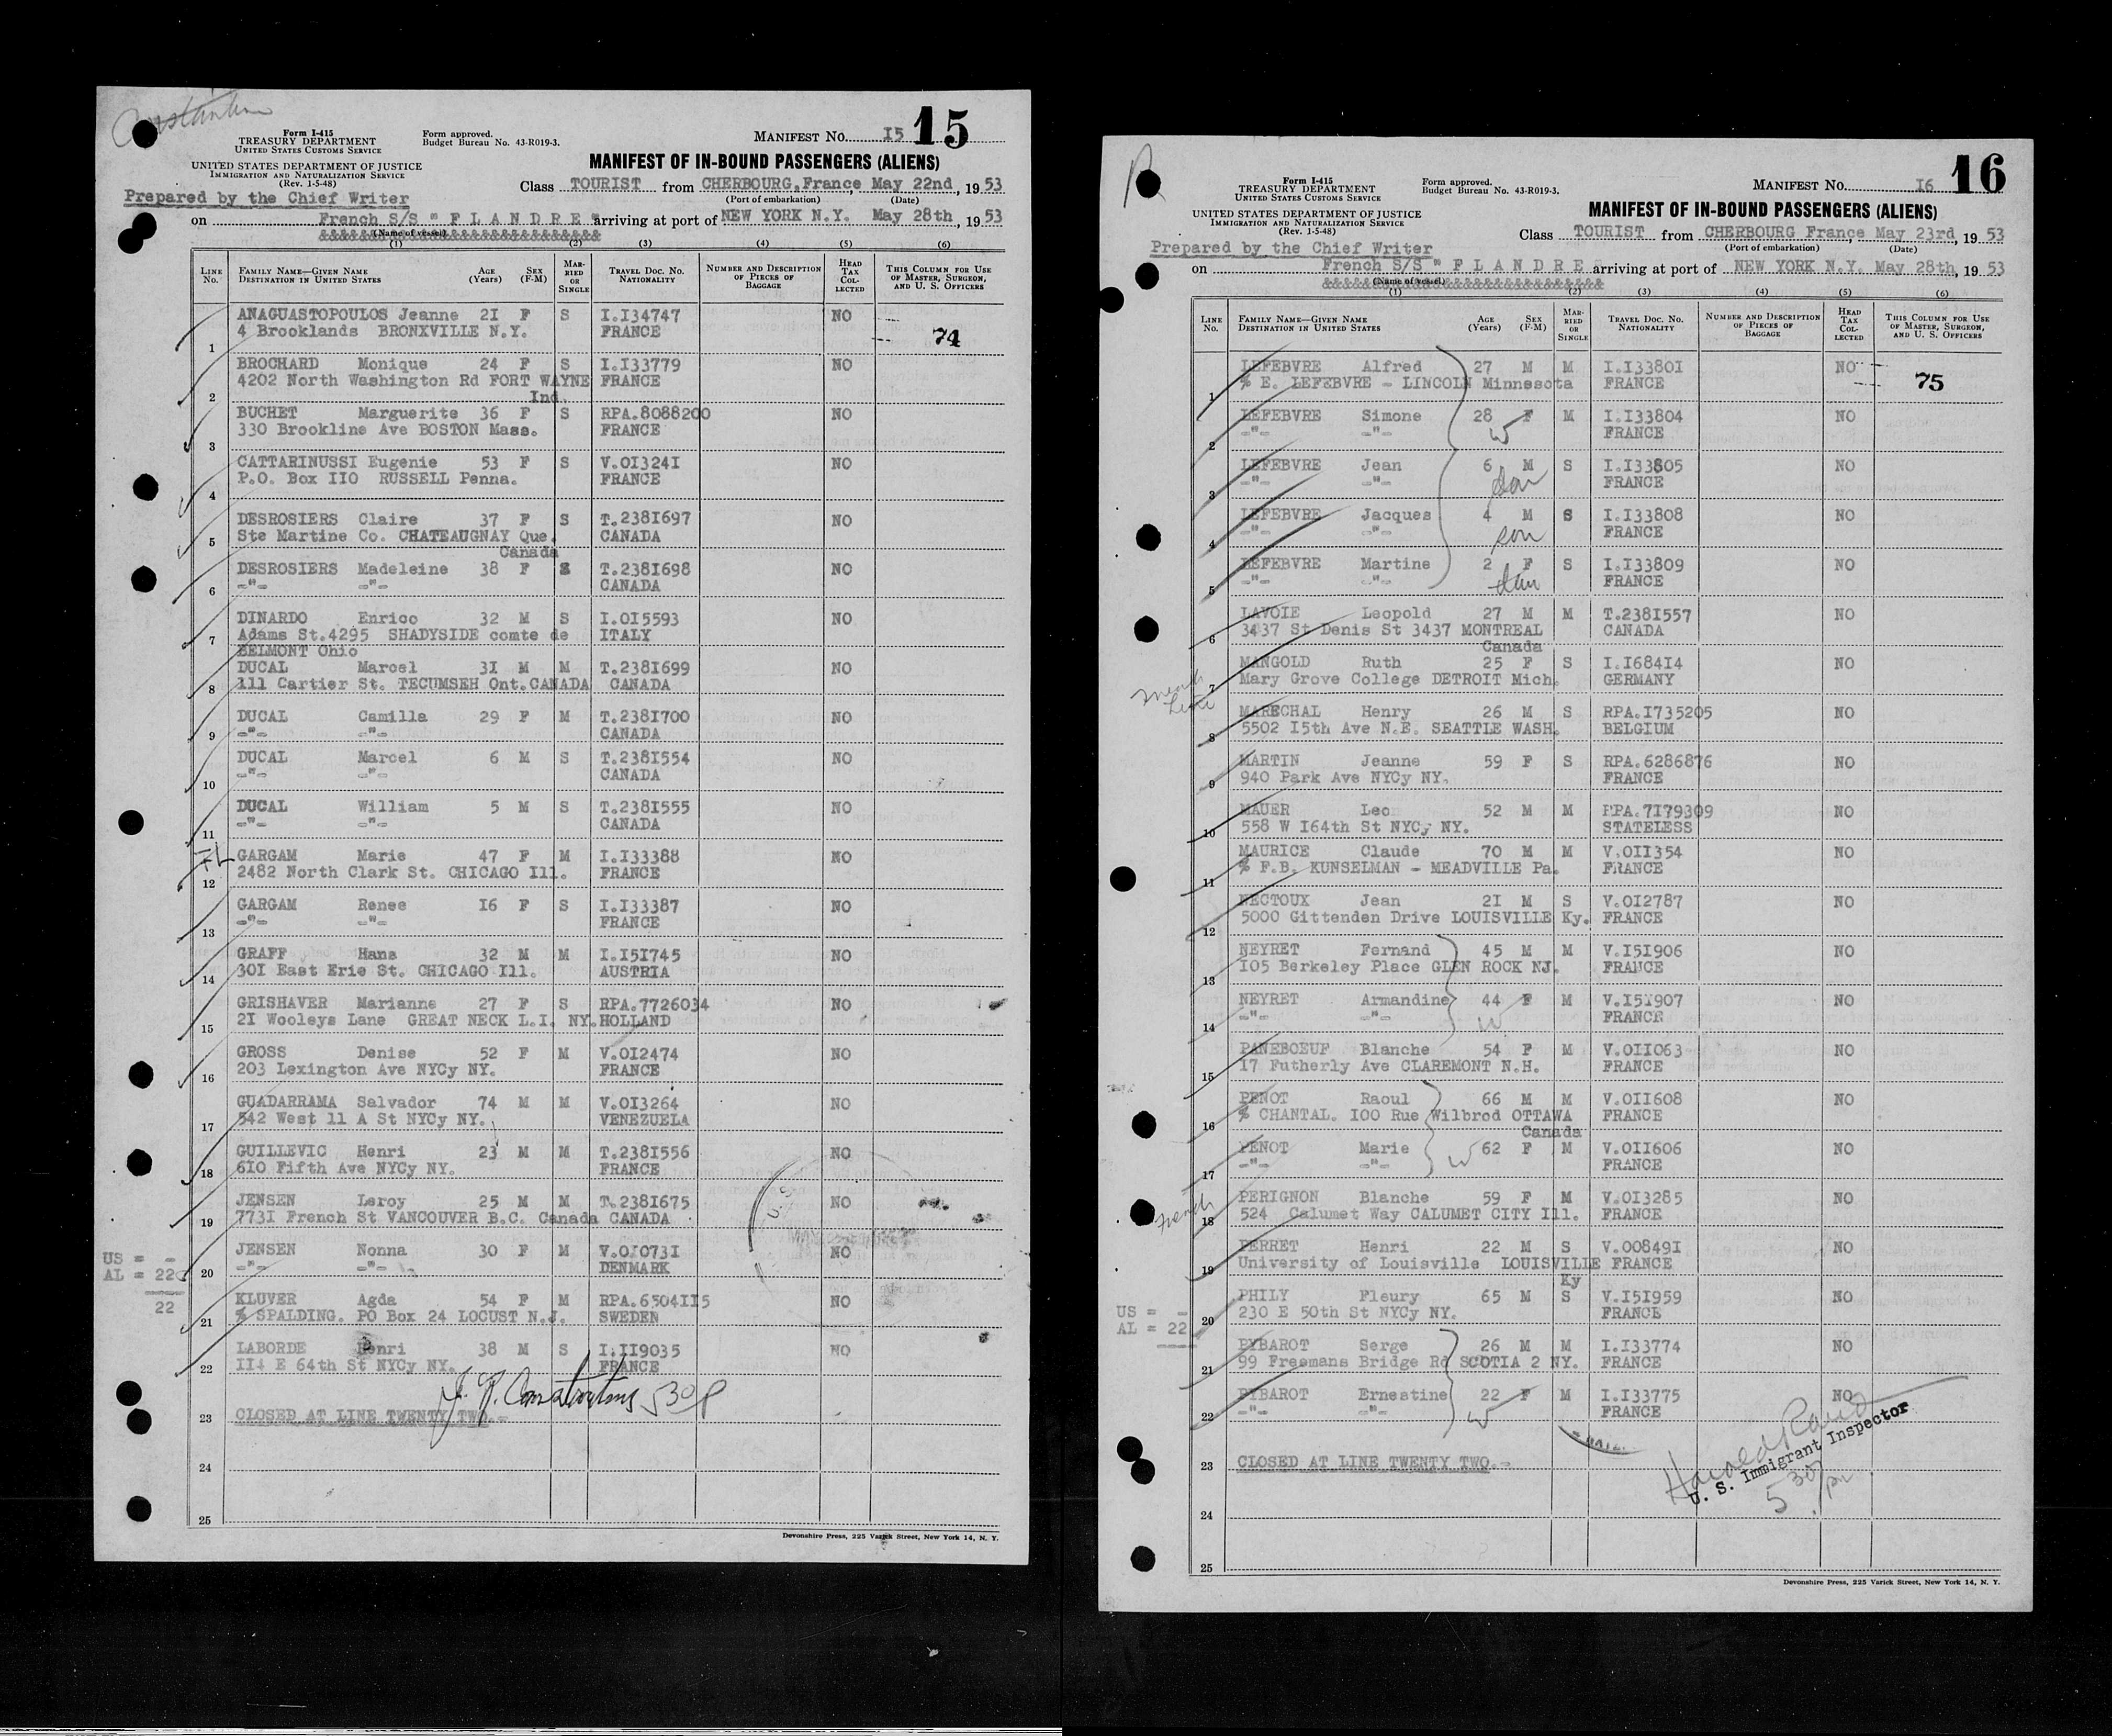 Form I-415
TREASURY DEPARTMENT
UNITED STATES CUSTOMS SERVICE
UNITED STATES DEPARTMENT OF JUSTICE
IMMIGRATION AND NATURALIZATION SERVICE
(Rev. 1-5-48)
Form approved.
Budget Bureau No. 43-R019-3.
MANIFEST NO. I5 15
MANIFEST OF IN-BOUND PASSENGERS (ALIENS)
Class TOURIST from CHERBOURG, France May 22nd, 1953
Prepared by the Chief Writer
(Port of embarkation) (Date)
on French S/S " F L A N D R E " arriving at port of NEW YORK N.Y. May 28th, 1953
(Name of vessel)
(1) (2) (3) (4) (5) (6)
LINE No. FAMILY NAME—GIVEN NAME DESTINATION IN UNITED STATES AGE (Years) SEX (F-M) MARRIED OR SINGLE TRAVEL DOC. NO. NATIONALITY NUMBER AND DESCRIPTION OF PIECES OF BAGGAGE HEAD TAX COLLECTED THIS COLUMN FOR USE OF MASTER, SURGEON, AND U. S. OFFICERS
ANAGUASTOPOULOS Jeanne 2I F S I.I34747 NO
1 4 Brooklands BRONXVILLE N.Y. FRANCE 74
BROCHARD Monique 24 F S I.I33779 NO
4202 North Washington Rd FORT WAYNE FRANCE
2 Ind.
BUCHET Marguerite 36 F S RPA.8088200 NO
3 330 Brookline Ave BOSTON Mass. FRANCE
CATTARINUSSI Eugenie 53 F S V.OI324I NO
4 P.O. Box IIO RUSSELL Penna. FRANCE
DESROSIERS Claire 37 F S T.238I697 NO
5 Ste Martine Co. CHATEAUGNAY Que. CANADA
Canada
DESROSIERS Madeleine 38 F S T.238I698 NO
6 -"- -"- CANADA
DINARDO Enrico 32 M S I.OI5593 NO
7 Adams St.4295 SHADYSIDE comte de ITALY
BELMONT Ohio
DUCAL Marcel 3I M M T.238I699 NO
8 111 Cartier St. TECUMSEH Ont.CANADA CANADA
DUCAL Camilla 29 F M T.238I700 NO
9 -"- -"- CANADA
DUCAL Marcel 6 M S T.238I554 NO
10 -"- -"- CANADA
DUCAL William 5 M S T.238I555 NO
11 -"- -"- CANADA
GARGAM Marie 47 F M I.I33388 NO
12 2482 North Clark St. CHICAGO Ill. FRANCE
GARGAM Renee I6 F S I.I33387 NO
13 -"- -"- FRANCE
GRAFF Hans 32 M M I.I5I745 NO
14 30I East Erie St. CHICAGO Ill. AUSTRIA
GRISHAVER Marianne 27 F S RPA.7726034 NO
15 2I Wooleys Lane GREAT NECK L.I. NY. HOLLAND
GROSS Denise 52 F M V.OI2474 NO
16 203 Lexington Ave NYCy NY. FRANCE
GUADARRAMA Salvador 74 M M V.OI3264 NO
17 542 West 11 A St NYCy NY. VENEZUELA
GUILLEVIC Henri 23 M M T.238I556 NO
18 6IO Fifth Ave NYCy NY. FRANCE
JENSEN Leroy 25 M M T.238I675 NO
19 773I French St VANCOUVER B.C. Canada CANADA
JENSEN Nonna 30 F M V.OI073I NO
20 -"- -"- DENMARK
US = -
AL = 22
22
KLUVER Agda 54 F M RPA.6504II5 NO
21 % SPALDING. PO Box 24 LOCUST N.J. SWEDEN
LABORDE Henri 38 M S I.II9035 NO
22 II4 E 64th St NYCy NY. FRANCE
23 CLOSED AT LINE TWENTY TWO.-
24
25
Devonshire Press, 225 Varick Street, New York 14, N. Y.
Form I-415
TREASURY DEPARTMENT
UNITED STATES CUSTOMS SERVICE
UNITED STATES DEPARTMENT OF JUSTICE
IMMIGRATION AND NATURALIZATION SERVICE
(Rev. 1-5-48)
Form approved.
Budget Bureau No. 43-R019-3.
MANIFEST NO. I6 16
MANIFEST OF IN-BOUND PASSENGERS (ALIENS)
Class TOURIST from CHERBOURG France May 23rd, 1953
Prepared by the Chief Writer
(Port of embarkation) (Date)
on French S/S " F L A N D R E arriving at port of NEW YORK N.Y. May 28th, 1953
(Name of vessel)
(1) (2) (3) (4) (5) (6)
LINE No. FAMILY NAME—GIVEN NAME DESTINATION IN UNITED STATES AGE (Years) SEX (F-M) MARRIED OR SINGLE TRAVEL DOC. NO. NATIONALITY NUMBER AND DESCRIPTION OF PIECES OF BAGGAGE HEAD TAX COLLECTED THIS COLUMN FOR USE OF MASTER, SURGEON, AND U. S. OFFICERS
LEFEBVRE Alfred 27 M M I.I3380I NO
1 % E. LEFEBVRE - LINCOLN Minnesota FRANCE 75
LEFEBVRE Simone 28 F M I.I33804 NO
2 -"- -"- w FRANCE
LEFEBVRE Jean 6 M S I.I33805 NO
3 -"- -"- son FRANCE
LEFEBVRE Jacques 4 M S I.I33808 NO
4 -"- -"- son FRANCE
LEFEBVRE Martine 2 F S I.I33809 NO
5 -"- -"- dau FRANCE
LAVOIE Leopold 27 M M T.238I557 NO
6 3437 St Denis St 3437 MONTREAL CANADA
Canada
MANGOLD Ruth 25 F S I.I684I4 NO
7 Mary Grove College DETROIT Mich. GERMANY
MARECHAL Henry 26 M S RPA.I735205 NO
8 5502 I5th Ave N.E. SEATTLE WASH. BELGIUM
MARTIN Jeanne 59 F S RPA.6286876 NO
9 940 Park Ave NYCy NY. FRANCE
MAUER Leo 52 M M RPA.7I79309 NO
10 558 W I64th St NYCy NY. STATELESS
MAURICE Claude 70 M M V.OII354 NO
11 % F.B. KUNSELMAN - MEADVILLE Pa. FRANCE
NECTOUX Jean 2I M S V.OI2787 NO
12 5000 Gittenden Drive LOUISVILLE Ky. FRANCE
NEYRET Fernand 45 M M V.I5I906 NO
13 I05 Berkeley Place GLEN ROCK NJ. FRANCE
NEYRET Armandine 44 F M V.I5I907 NO
14 -"- -"- w FRANCE
PANEBOEUF Blanche 54 F M V.OII063 NO
15 I7 Futherly Ave CLAREMONT N.H. FRANCE
PENOT Raoul 66 M M V.OII608 NO
16 % CHANTAL. I00 Rue Wilbrod OTTAWA FRANCE
Canada
PENOT Marie w 62 F M V.OII606 NO
17 -"- -"- FRANCE
PERIGNON Blanche 59 F M V.OI3285 NO
French
18 524 Calumet Way CALUMET CITY Ill. FRANCE
PERRET Henri 22 M S V.00849I NO
19 University of Louisville LOUISVILLE FRANCE
Ky
PHILY Fleury 65 M S V.I5I959 NO
20 230 E 50th St NYCy NY. FRANCE
US = -
AL = 22
PYBAROT Serge 26 M M I.I33774 NO
21 99 Freemans Bridge Rd SCOTIA 2 NY. FRANCE
PYBAROT Ernestine 22 F M I.I33775 NO
22 -"- -"- w FRANCE
U. S. Immigrant Inspector
5 30 pm
23 CLOSED AT LINE TWENTY TWO.-
24
25
Devonshire Press, 225 Varick Street, New York 14, N. Y.